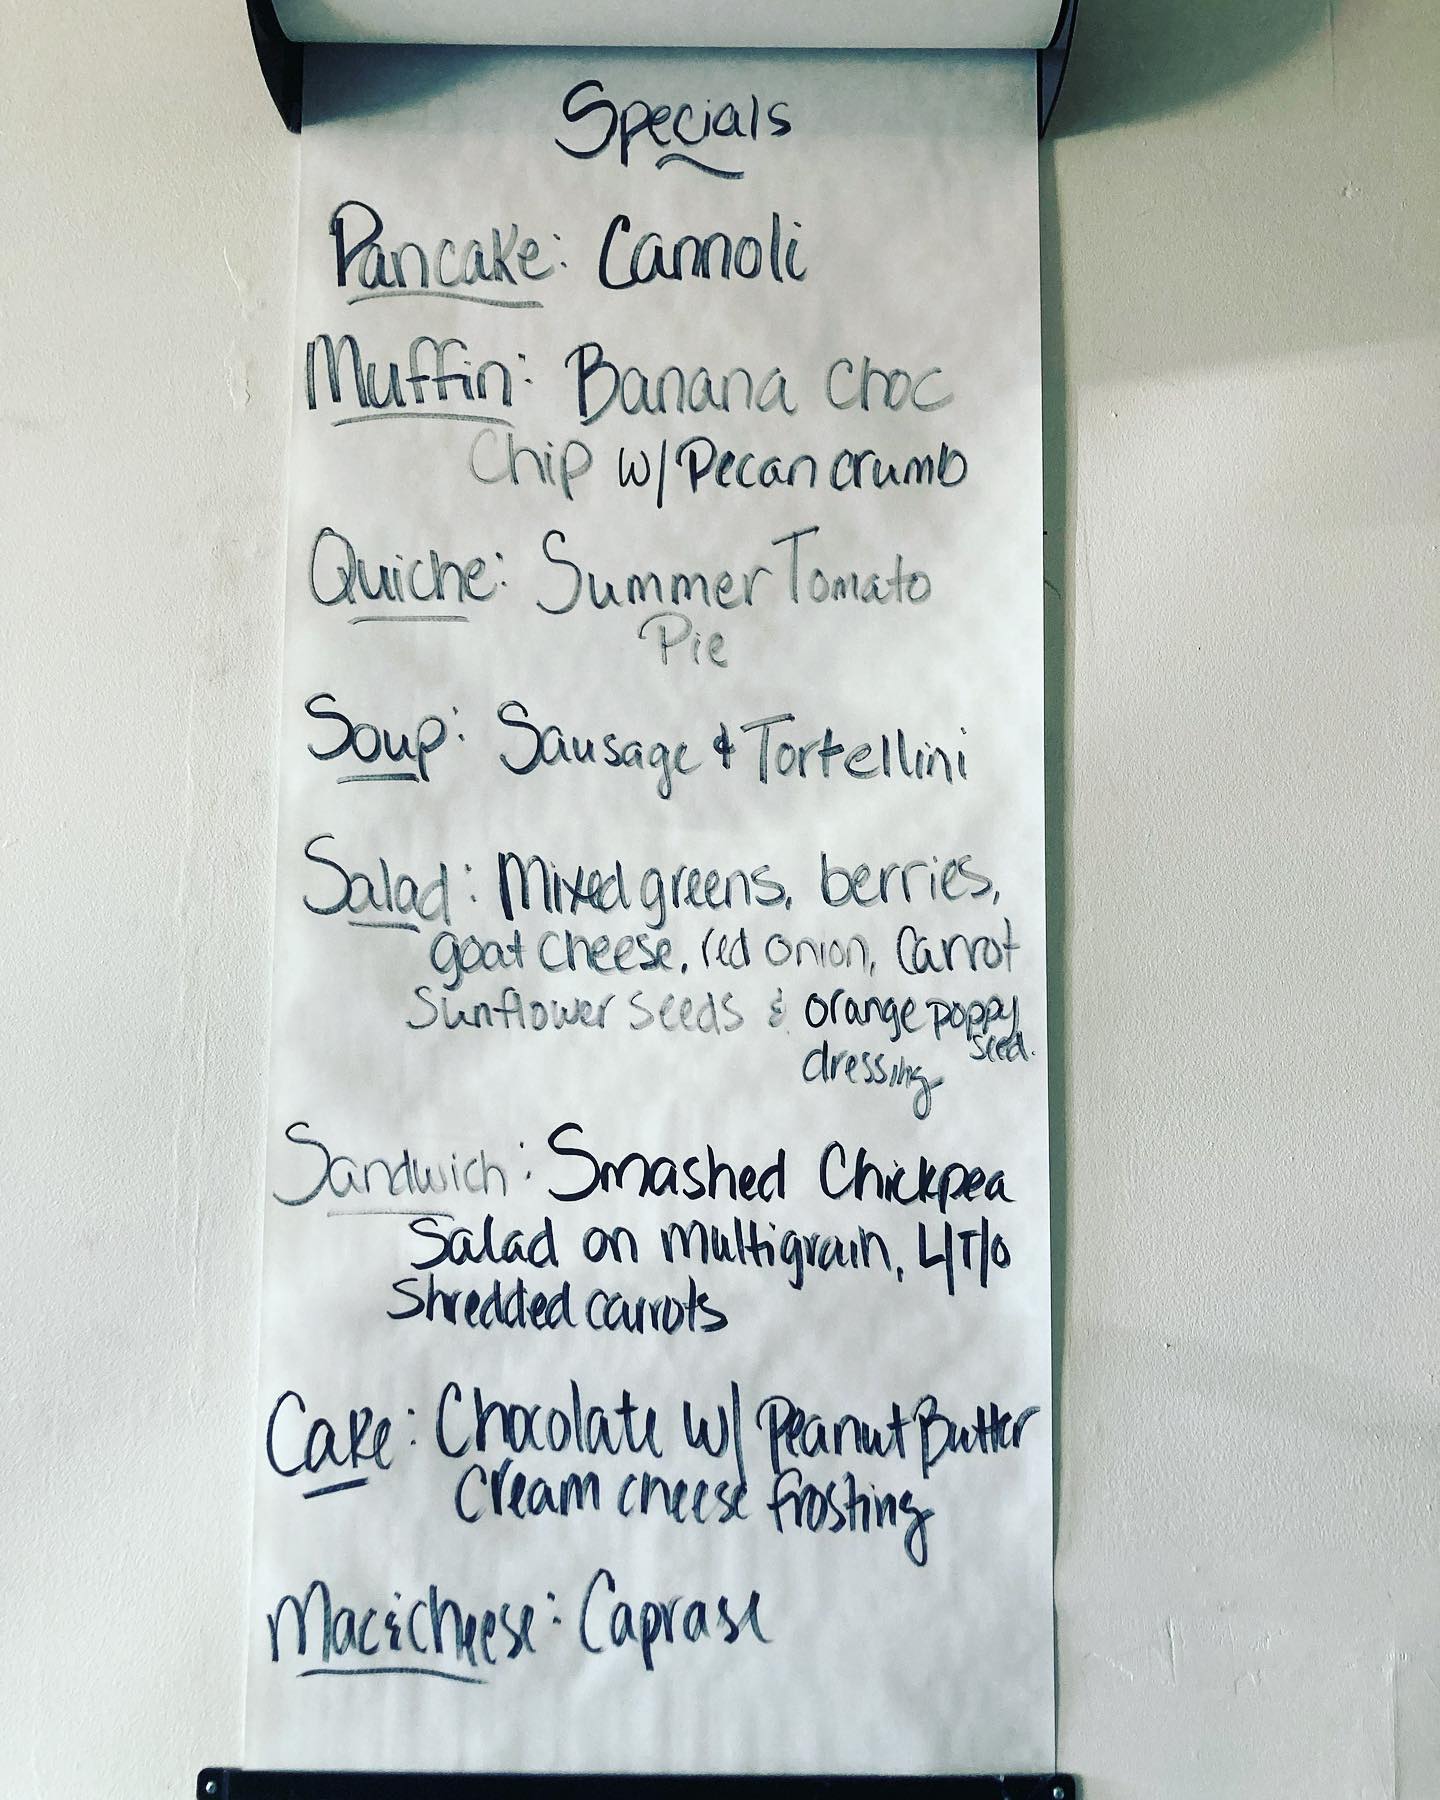 Specials
Pancake: Cannoli
Muffin: Banana Choc
Chip w/ Pecan crumb
Quiche: Summer Tomato
Pie
Soup: Sausage & Tortellini
Salad: Mixed greens, berries,
goat cheese, red onion, Carrot
Sunflower seeds & orange poppy
seed.
dressing
Sandwich: Smashed Chickpea
Salad on multigrain, L/T/O
Shredded carrots
Cake: Chocolate w/ Peanut Butter
Cream cheese frosting
Mac & Cheese: Caprase